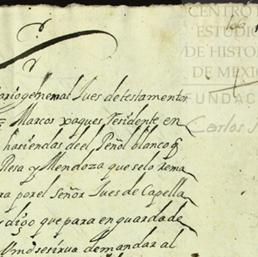 CENTRO
ESTUDI
DE HISTOR
DE MEXI
FUNDAC
Carlos S
ario general Jues de testamentos
Marcos Xaques Residente en
haziendas de el Peñol blanco q
Plesa y Mendoza que se lo rema
ra por el Señor Jues de Capella
digo que para en guarda de
Vmd se sirva de mandar al